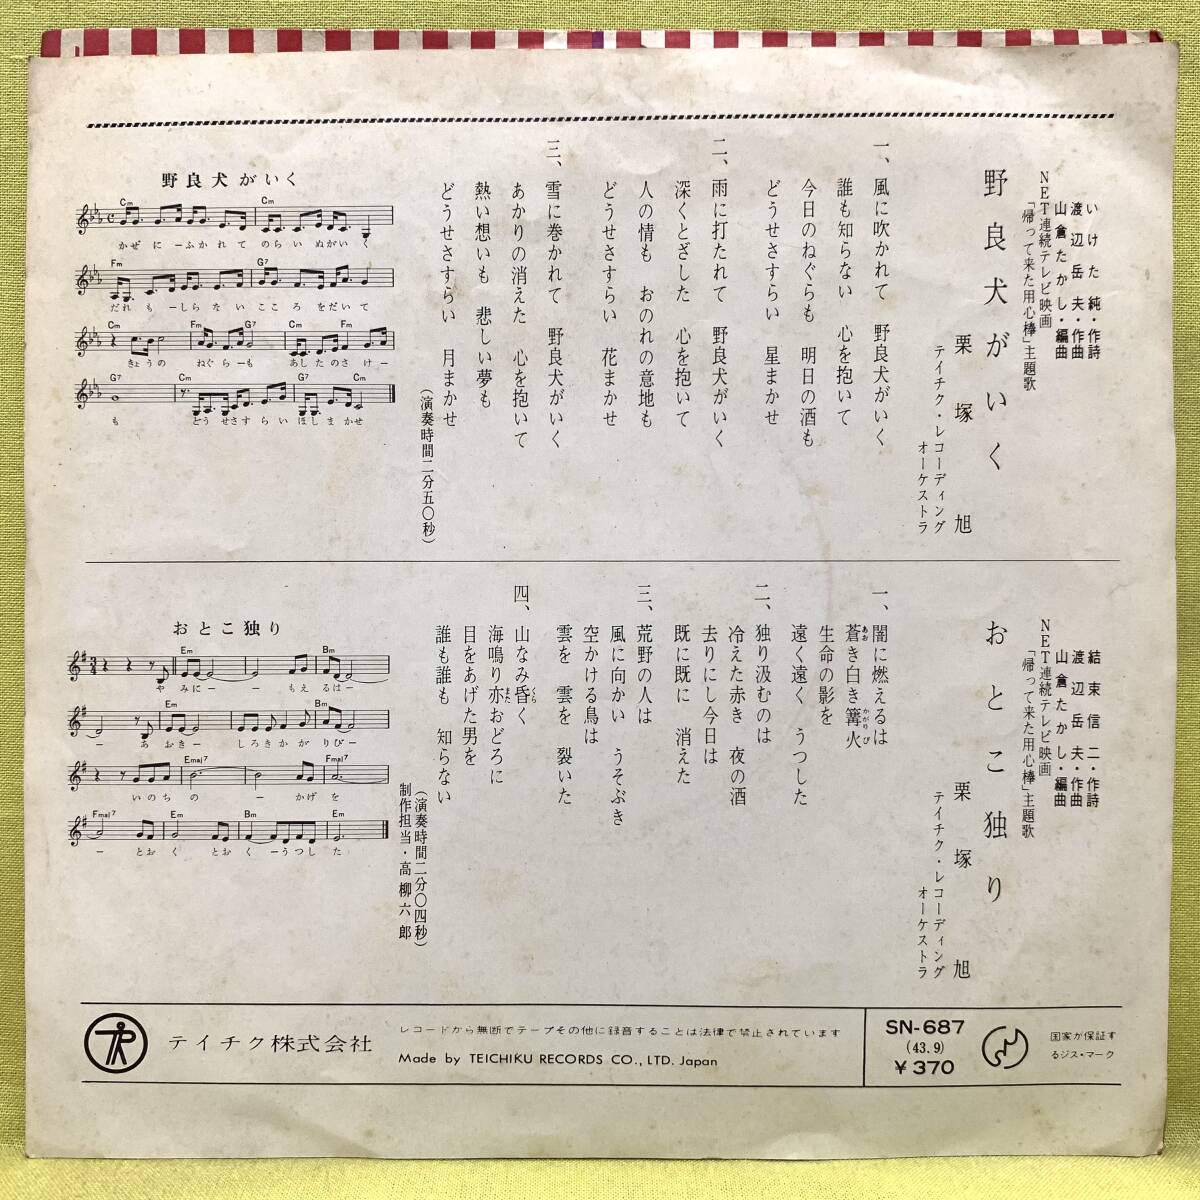 いけた 純・作詩
渡辺岳夫・作曲
山倉たかし・編曲
NET連続テレビ映画
「帰って来た用心棒」主題歌
野良犬がいく
栗塚 旭
テイチク・レコーディング
オーケストラ
一、風に吹かれて 野良犬がいく
誰も知らない 心を抱いて
今日のねぐらも 明日の酒も
どうせさすらい 星まかせ
二、雨に打たれて 野良犬がいく
深くとざした 心を抱いて
人の情も おのれの意地も
どうせさすらい 花まかせ
三、雪に巻かれて 野良犬がいく
あかりの消えた 心を抱いて
熱い想いも 悲しい夢も
どうせさすらい 月まかせ
(演奏時間二分五〇秒)
野良犬がいく
Cm Cm
かぜにーふかれて のらいぬがいく
Fm G7
だれもーしらない こころをだいて
Cm Fm G7 Cm Fm
きょうの ねぐらーも あしたのさけー
G7 Cm G7 Cm
も どうせさすらいほしまかせ
結束信二・作詩
渡辺岳夫・作曲
山倉たかし・編曲
NET連続テレビ映画
「帰って来た用心棒」主題歌
おとこ独り
栗塚 旭
テイチク・レコーディング
オーケストラ
一、闇に燃えるは
蒼き白き篝火
あお かがりび
生命の影を
遠く遠く うつした
二、独り汲むのは
冷えた赤き 夜の酒
去りにし今日は
既に既に 消えた
三、荒野の人は
風に向かい うそぶき
空かける鳥は
雲を 雲を 裂いた
四、山なみ昏く
くら
海鳴り亦おどろに
また
目をあげた男を
誰も誰も 知らない
(演奏時間二分〇四秒)
制作担当・高柳六郎
おとこ独り
Em Bm
やみにーー もえるはー
Em Bm
ー あおきー しろきかがりびー
Emaj7 Fmaj7
いのちのー かげを
Fmaj7 Em Bm Em
ー とおく とおくーうつした
テイチク株式会社
レコードから無断でテープその他に録音することは法律で禁止されています
Made by TEICHIKU RECORDS CO., LTD. Japan
SN-687
(43.9)
¥370
国家が保証す
るジス・マーク